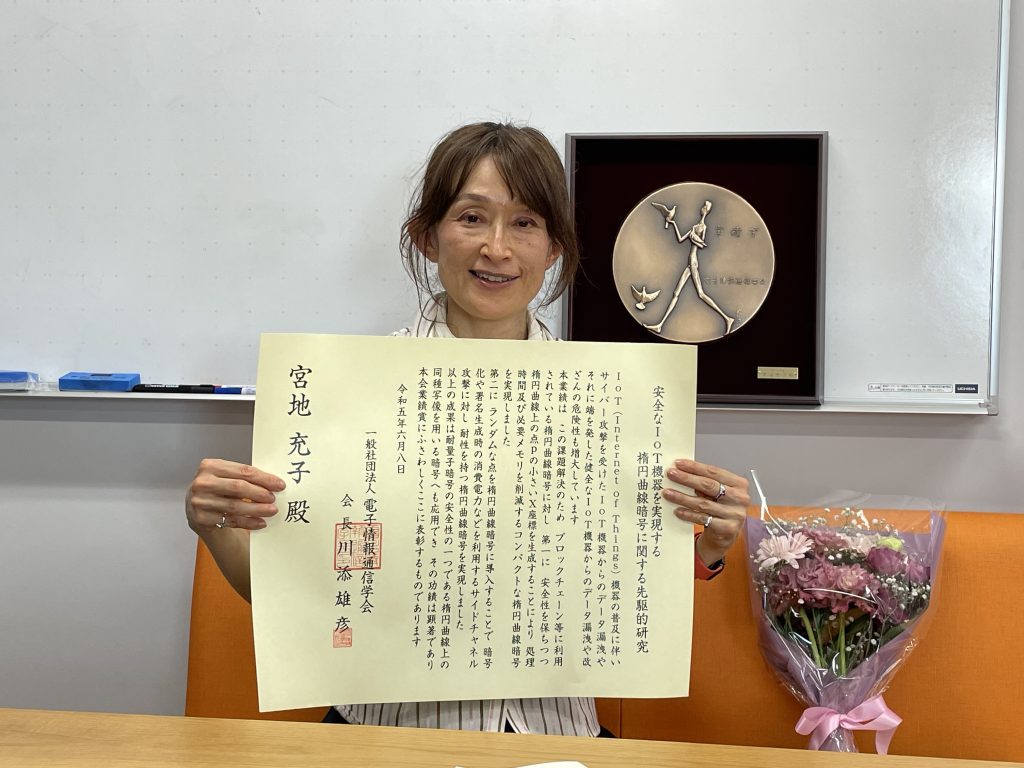 安全なIoT機器を実現する
楕円曲線暗号に関する先駆的研究
IoT (Internet of Things) 機器の普及に伴い
サイバー攻撃を受けたIoT機器からのデータ漏洩や
それに端を発した健全なIoT機器からのデータ漏洩や改
ざんの危険性も増大しています
本業績は この課題解決のため ブロックチェーン等に利用
されている楕円曲線暗号に対し 第一に 安全性を保ちつつ
楕円曲線上の点Pの小さいX座標を生成することにより 処理
時間及び必要メモリを削減するコンパクトな楕円曲線暗号
を実現しました
第二に ランダムな点を楕円曲線暗号に導入することで 暗号
化や署名生成時の消費電力などを利用するサイドチャネル
攻撃に対し 耐性を持つ楕円曲線暗号を実現しました
以上の成果は耐量子暗号の安全性の一つである楕円曲線上の
同種写像を用いる暗号へも応用でき その功績は顕著であり
本会業績賞にふさわしくここに表彰するものであります
令和五年六月八日
一般社団法人 電子情報通信学会
会長 川添雄彦
宮地 充子 殿
UCHIDA